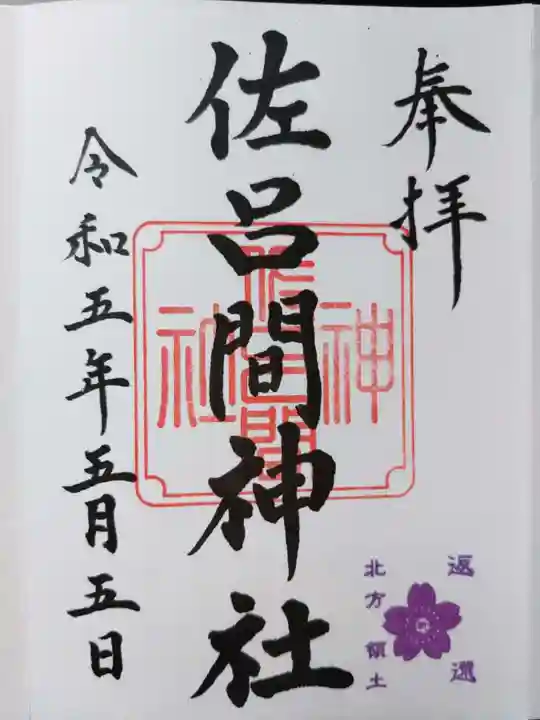 奉拝
佐呂間神社
神佐呂間社
令和五年五月五日
返還
北方領土